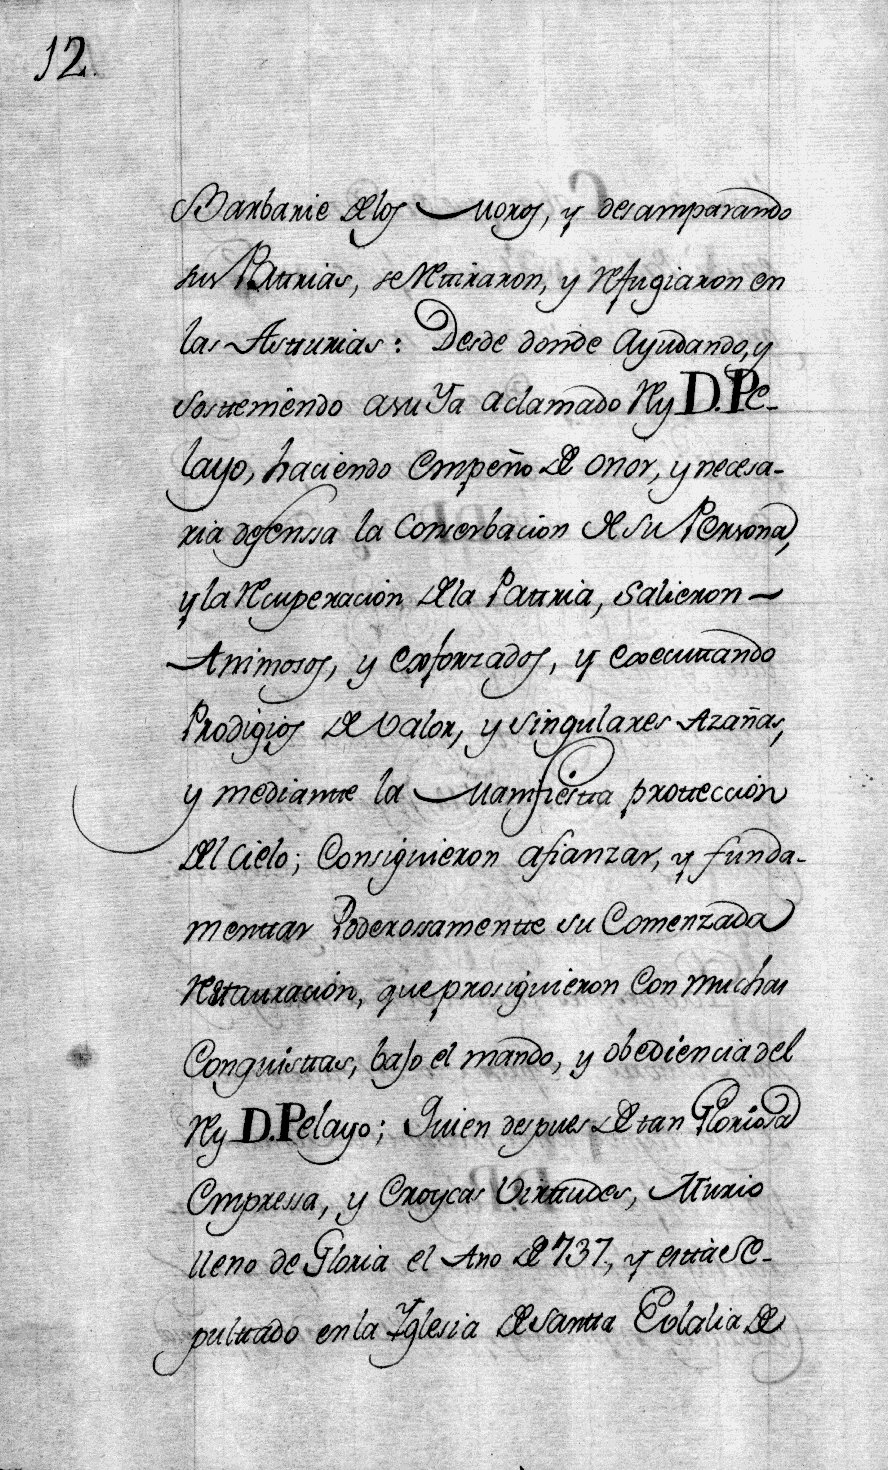 12.
Barbarie de los Moros, y desamparando
sus Pattrias, se Rettiraron, y Refugiaron en
las Astturias: Desde donde Ayudando, y
Sosteniendo a su Ya aclamado Rey D. Pe-
layo, haciendo Empeño de onor, y necesa-
ria defenssa la Conserbacion de su Persona,
y la Recuperacion de la Pattria, Salieron
Animosos, y Exforzados, y Executtando
Prodigios de Valor, y Singulares Azañas,
y mediantte la Manifiestta prottección
del Cielo; Consiguieron afianzar, y funda-
menttar Poderossamentte su Comenzada
Restauración, que prosiguieron Con muchas
Conquisttas, bajo el mando, y obediencia del
Rey D. Pelayo; Quien despues de tan Gloriosa
Empressa, y Eroycas Virttudes, Murio
lleno de Gloria el Año de 737, y esttà Se-
pulttado en la Yglesia de Santta Eolalia de